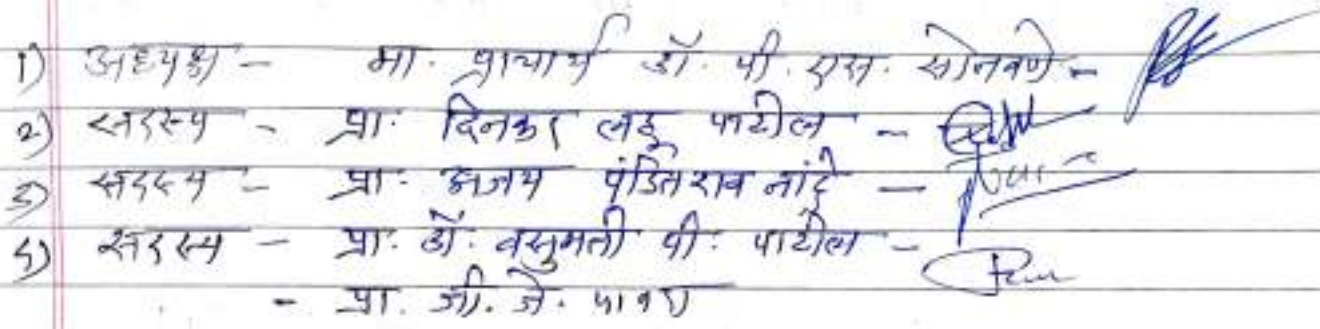 १) अध्यक्ष - मा. प्राचार्य डॉ. पी. एस. सोनवणे -
२) सदस्य - प्रा. दिनकर लडू पाटील -
३) सदस्य - प्रा. अजय पंडितराव नांद्रे -
४) सदस्य - प्रा. डॉ. वसुमती पी. पाटील -
- प्रा. जी. जे. पावरा